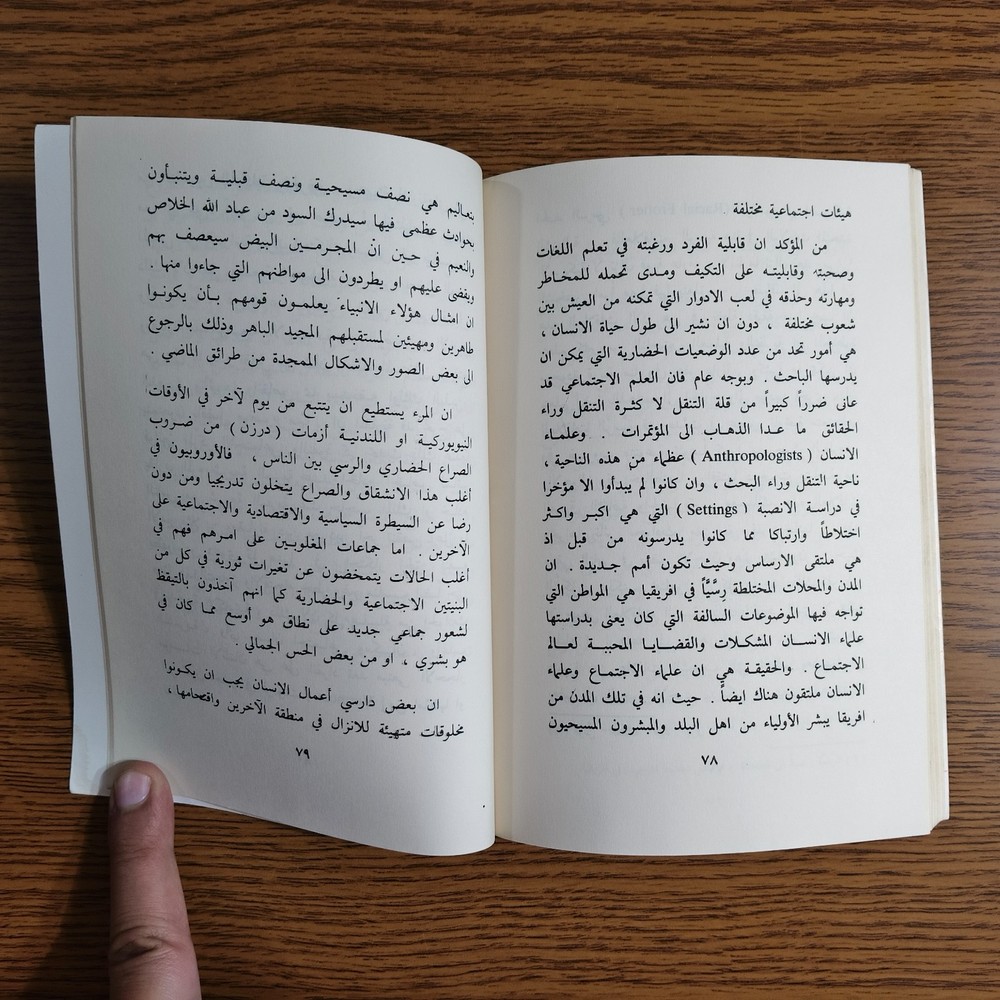 هيئات اجتماعية مختلفة .
من المؤكد ان قابلية الفرد ورغبته في تعلم اللغات
وصحبته وقابليته على التكيف ومدى تحمله للمخاطر
ومهارته وحذقه في لعب الادوار التي تمكنه من العيش بين
شعوب مختلفة ، دون ان نشير الى طول حياة الانسان ،
هي أمور تحد من عدد الوضعيات الحضارية التي يمكن ان
يدرسها الباحث . وبوجه عام فان العلم الاجتماعي قد
عانى ضرراً كبيراً من قلة التنقل لا كثرة التنقل وراء
الحقائق ما عدا الذهاب الى المؤتمرات . وعلماء
الانسان ( Anthropologists ) عظماء من هذه الناحية ،
ناحية التنقل وراء البحث ، وان كانوا لم يبدأوا الا مؤخرا
في دراسة الانصبة ( Settings ) التي هي اكبر واكثر
اختلاطاً وارتباكا مما كانوا يدرسونه من قبل اذ
هي ملتقى الارساس وحيث تكون أمم جديدة . ان
المدن والمحلات المختلطة رِسَّيَّاً في افريقيا هي المواطن التي
تواجه فيها الموضوعات السالفة التي كان يعنى بدراستها
علماء الانسان المشكلات والقضايا المحببة لعالم
الاجتماع . والحقيقة هي ان علماء الاجتماع وعلماء
الانسان ملتقون هناك ايضاً . حيث انه في تلك المدن من
افريقا يبشر الأولياء من اهل البلد والمبشرون المسيحيون
٧٨
بتعاليم هي نصف مسيحية ونصف قبلية ويتنبأون
بحوادث عظمى فيها سيدرك السود من عباد الله الخلاص
والنعيم في حين انْ المجرمين البيض سيعصف بهم
ويقضى عليهم او يطردون الى مواطنهم التي جاءوا منها .
ان امثال هؤلاء الانبياء يعلمون قومهم بأن يكونوا
طاهرين ومهيئين لمستقبلهم المجيد الباهر وذلك بالرجوع
الى بعض الصور والاشكال الممجدة من طرائق الماضي .
ان المرء يستطيع ان يتتبع من يوم لآخر في الأوقات
النيويوركية او اللندنية أزمات ( درزن ) من ضروب
الصراع الحضاري والرسي بين الناس ، فالأوروبيون في
أغلب هذا الانشقاق والصراع يتخلون تدريجيا ومن دون
رضا عن السيطرة السياسية والاقتصادية والاجتماعية على
الآخرين . اما جماعات المغلوبين على امرهم فهم في
أغلب الحالات يتمخضون عن تغيرات ثورية في كل من
البنيتين الاجتماعية والحضارية كما انهم آخذون بالتيقظ
لشعور جماعي جديد على نطاق هو أوسع مما كان في
هو بشري ، او من بعض الحس الجمالي .
ان بعض دارسي أعمال الانسان يجب ان يكونوا
مخلوقات متهيئة للانزال في منطقة الآخرين واقتحامها ،
٧٩